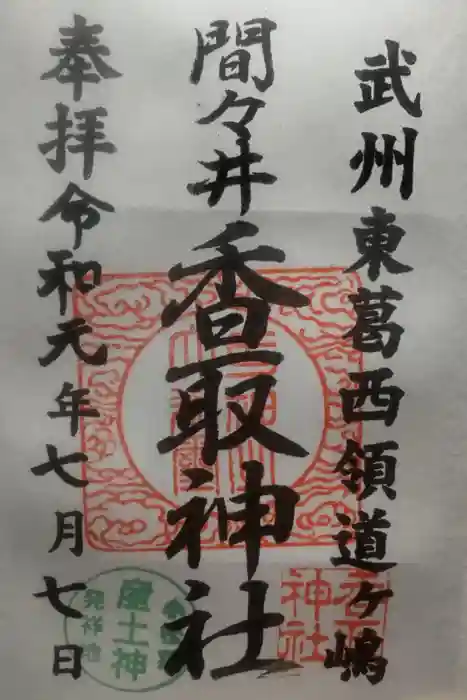 武州東葛西領道ヶ嶋
間々井香取神社
奉拝令和元年七月七日
香取神社
産土神
発祥地